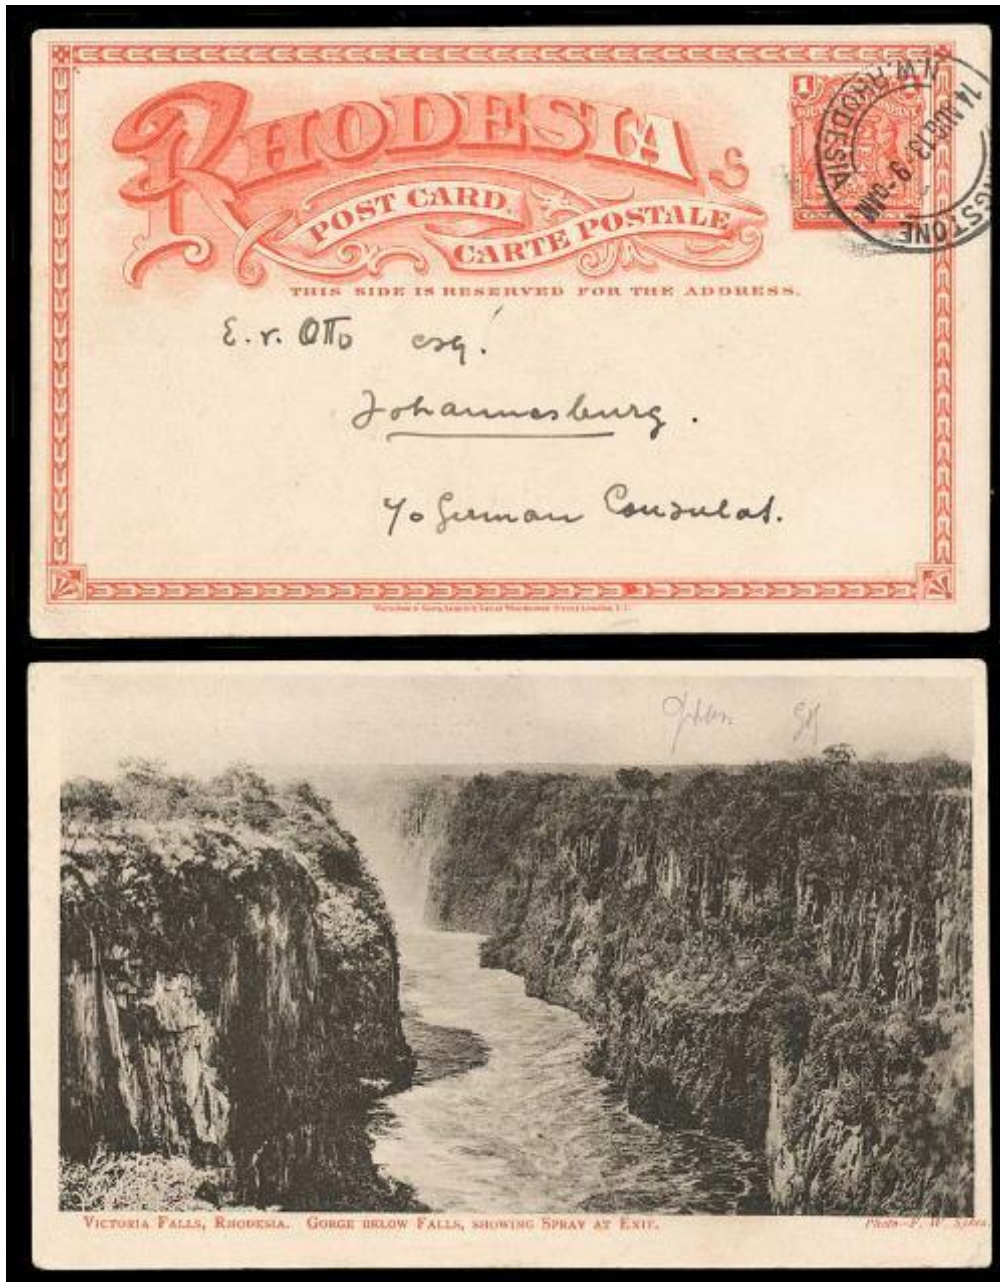 RHODESIA
POST CARD.
CARTE POSTALE
THIS SIDE IS RESERVED FOR THE ADDRESS.
1
N.W. RHODESIA
14 AUG 13
9 - AM
E. v. Otto esq.
Johannesburg.
c/o German Consulat.
VICTORIA FALLS, RHODESIA. GORGE BELOW FALLS, SHOWING SPRAY AT EXIT.
Photo—F. W. Sykes.